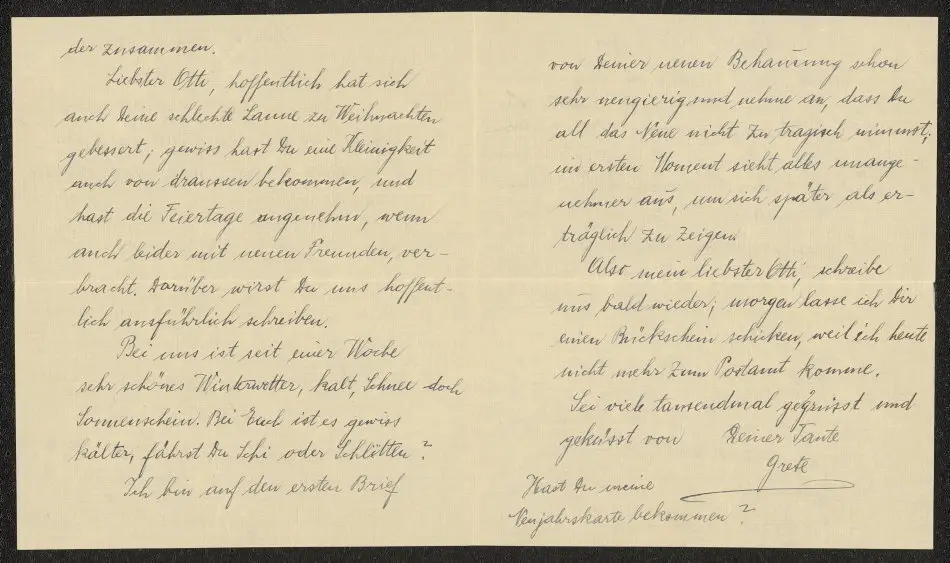 der zusammen.
Liebster Otti, hoffentlich hat sich
auch Deine schlechte Laune zu Weihnachten
gebessert; gewiss hast Du eine Kleinigkeit
auch von draussen bekommen, und
hast die Feiertage angenehm, wenn
auch leider mit neuen Freunden, ver-
bracht. Darüber wirst Du uns hoffent-
lich ausführlich schreiben.
Bei uns ist seit einer Woche
sehr schönes Winterwetter, kalt, Schnee doch
Sonnenschein. Bei Euch ist es gewiss
kälter, fährst Du Schi oder Schlitten?
Ich bin auf den ersten Brief
von Deiner neuen Behausung schon
sehr neugierig und nehme an, dass Du
all das Neue nicht zu tragisch nimmst;
im ersten Moment sieht alles unange-
nehmer aus, um sich später als er-
träglich zu zeigen.
Also mein liebster Otti, schreibe
uns bald wieder; morgen lasse ich Dir
einen Rückschein schicken, weil ich heute
nicht mehr zum Postamt komme.
Sei viele tausendmal gegrüsst und
geküsst von Deiner Tante
Grete
Hast Du meine
Neujahrskarte bekommen?